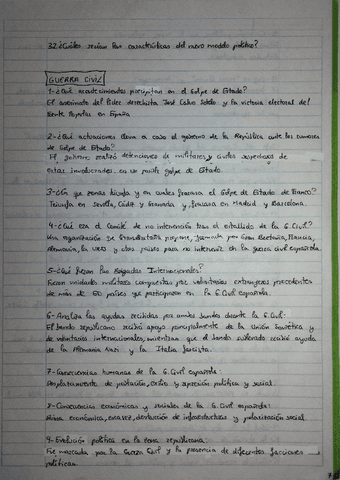 32 ¿Cuáles serían las características del nuevo modelo político?
GUERRA CIVIL
1- ¿Qué acontecimientos precipitan en el Golpe de Estado?
El asesinato del líder derechista José Calvo Sotelo y la victoria electoral del
Frente Popular en España
2- ¿Qué actuaciones lleva a cabo el gobierno de la República ante los rumores
de Golpe de Estado?
El gobierno realizó detenciones de militares y civiles sospechosos de
estar involucrados en un posible golpe de Estado.
3- ¿En qué zonas triunfa y en cuáles fracasa el Golpe de Estado de Franco?
Triunfa en Sevilla, Cádiz y Granada y fracasa en Madrid y Barcelona.
4- ¿Qué era el Comité de no intervención tras el estallido de la G. Civil?
Una organización de formada por Gran Bretaña, Francia,
Alemania, la URSS y otros países para no intervenir en la guerra civil española.
5- ¿Qué fueron las Brigadas Internacionales?
Fueron unidades militares compuestas por voluntarios extranjeros procedentes
de más de 50 países que participaron en la G. Civil española.
6- Analiza las ayudas recibidas por ambos bandos durante la G. Civil:
El bando republicano recibió apoyo principalmente de la Unión Soviética y
de voluntarios internacionales, mientras que el bando sublevado recibió ayuda
de la Alemania Nazi y la Italia fascista.
7- Consecuencias humanas de la G. Civil española:
Desplazamiento de población, exilio y represión política y social.
8- Consecuencias económicas y sociales de la G. Civil española:
económica, escasez, devastación de infraestructuras y polarización social.
9- Evolución política en la zona republicana:
Fue marcada por la Guerra Civil y la presencia de diferentes facciones
políticas.